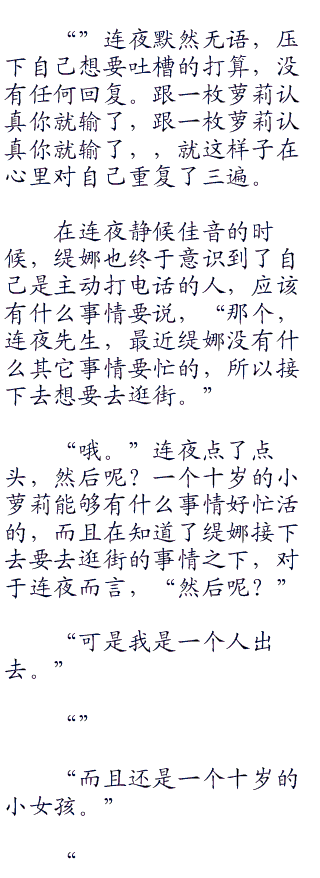 “”连夜默然无语，压
下自己想要吐槽的打算，没
有任何回复。跟一枚萝莉认
真你就输了，跟一枚萝莉认
真你就输了，，就这样子在
心里对自己重复了三遍。
在连夜静候佳音的时
候，缇娜也终于意识到了自
己是主动打电话的人，应该
有什么事情要说，“那个，
连夜先生，最近缇娜没有什
么其它事情要忙的，所以接
下去想要去逛街。”
“哦。”连夜点了点
头，然后呢？一个十岁的小
萝莉能够有什么事情好忙活
的，而且在知道了缇娜接下
去要去逛街的事情之下，对
于连夜而言，“然后呢？”
“可是我是一个人出
去。”
“”
“而且还是一个十岁的
小女孩。”
“